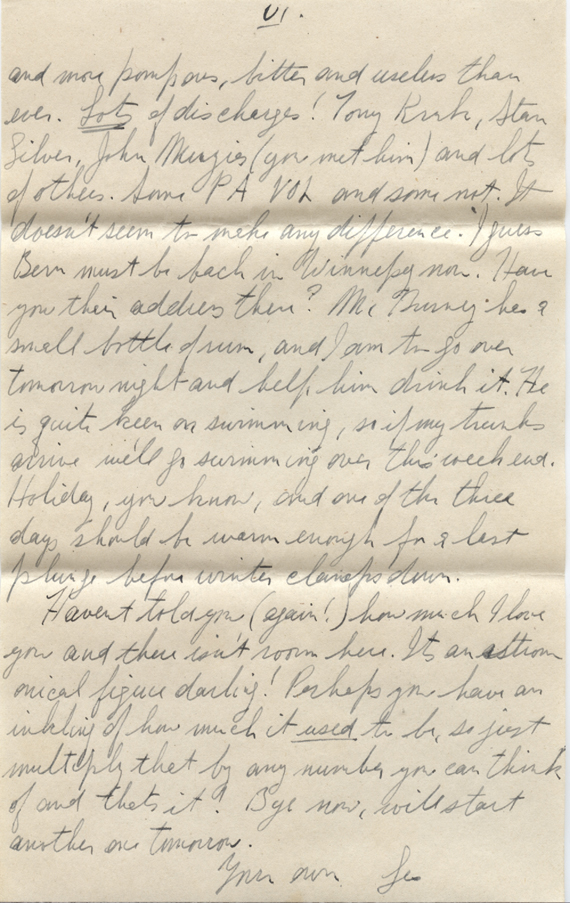 VI.
and more pompous, bitter and useless than
ever. Lots of discharges! Tony Kush, Stan
Silver, John Menzies (you met him) and lots
of others. Some P A VOL and some not. It
doesn't seem to make any difference. I guess
Bern must be back in Winnepeg now. Have
you their address there? Mc Burney has a
small bottle of rum, and I am to go over
tomorrow night and help him drink it. He
is quite keen on swimming, so if my trunks
arrive we'll go swimming over this weekend.
Holiday, you know, and one of the three
days should be warm enough for a last
plunge before winter clamps down.
Havent told you (again!) how much I love
you and there isn't room here. Its an astrom
omical figure darling! Perhaps you have an
inkling of how much it used to be, so just
multiply that by any number you can think
of and thats it! Bye now, will start
another one tomorrow.
Your own